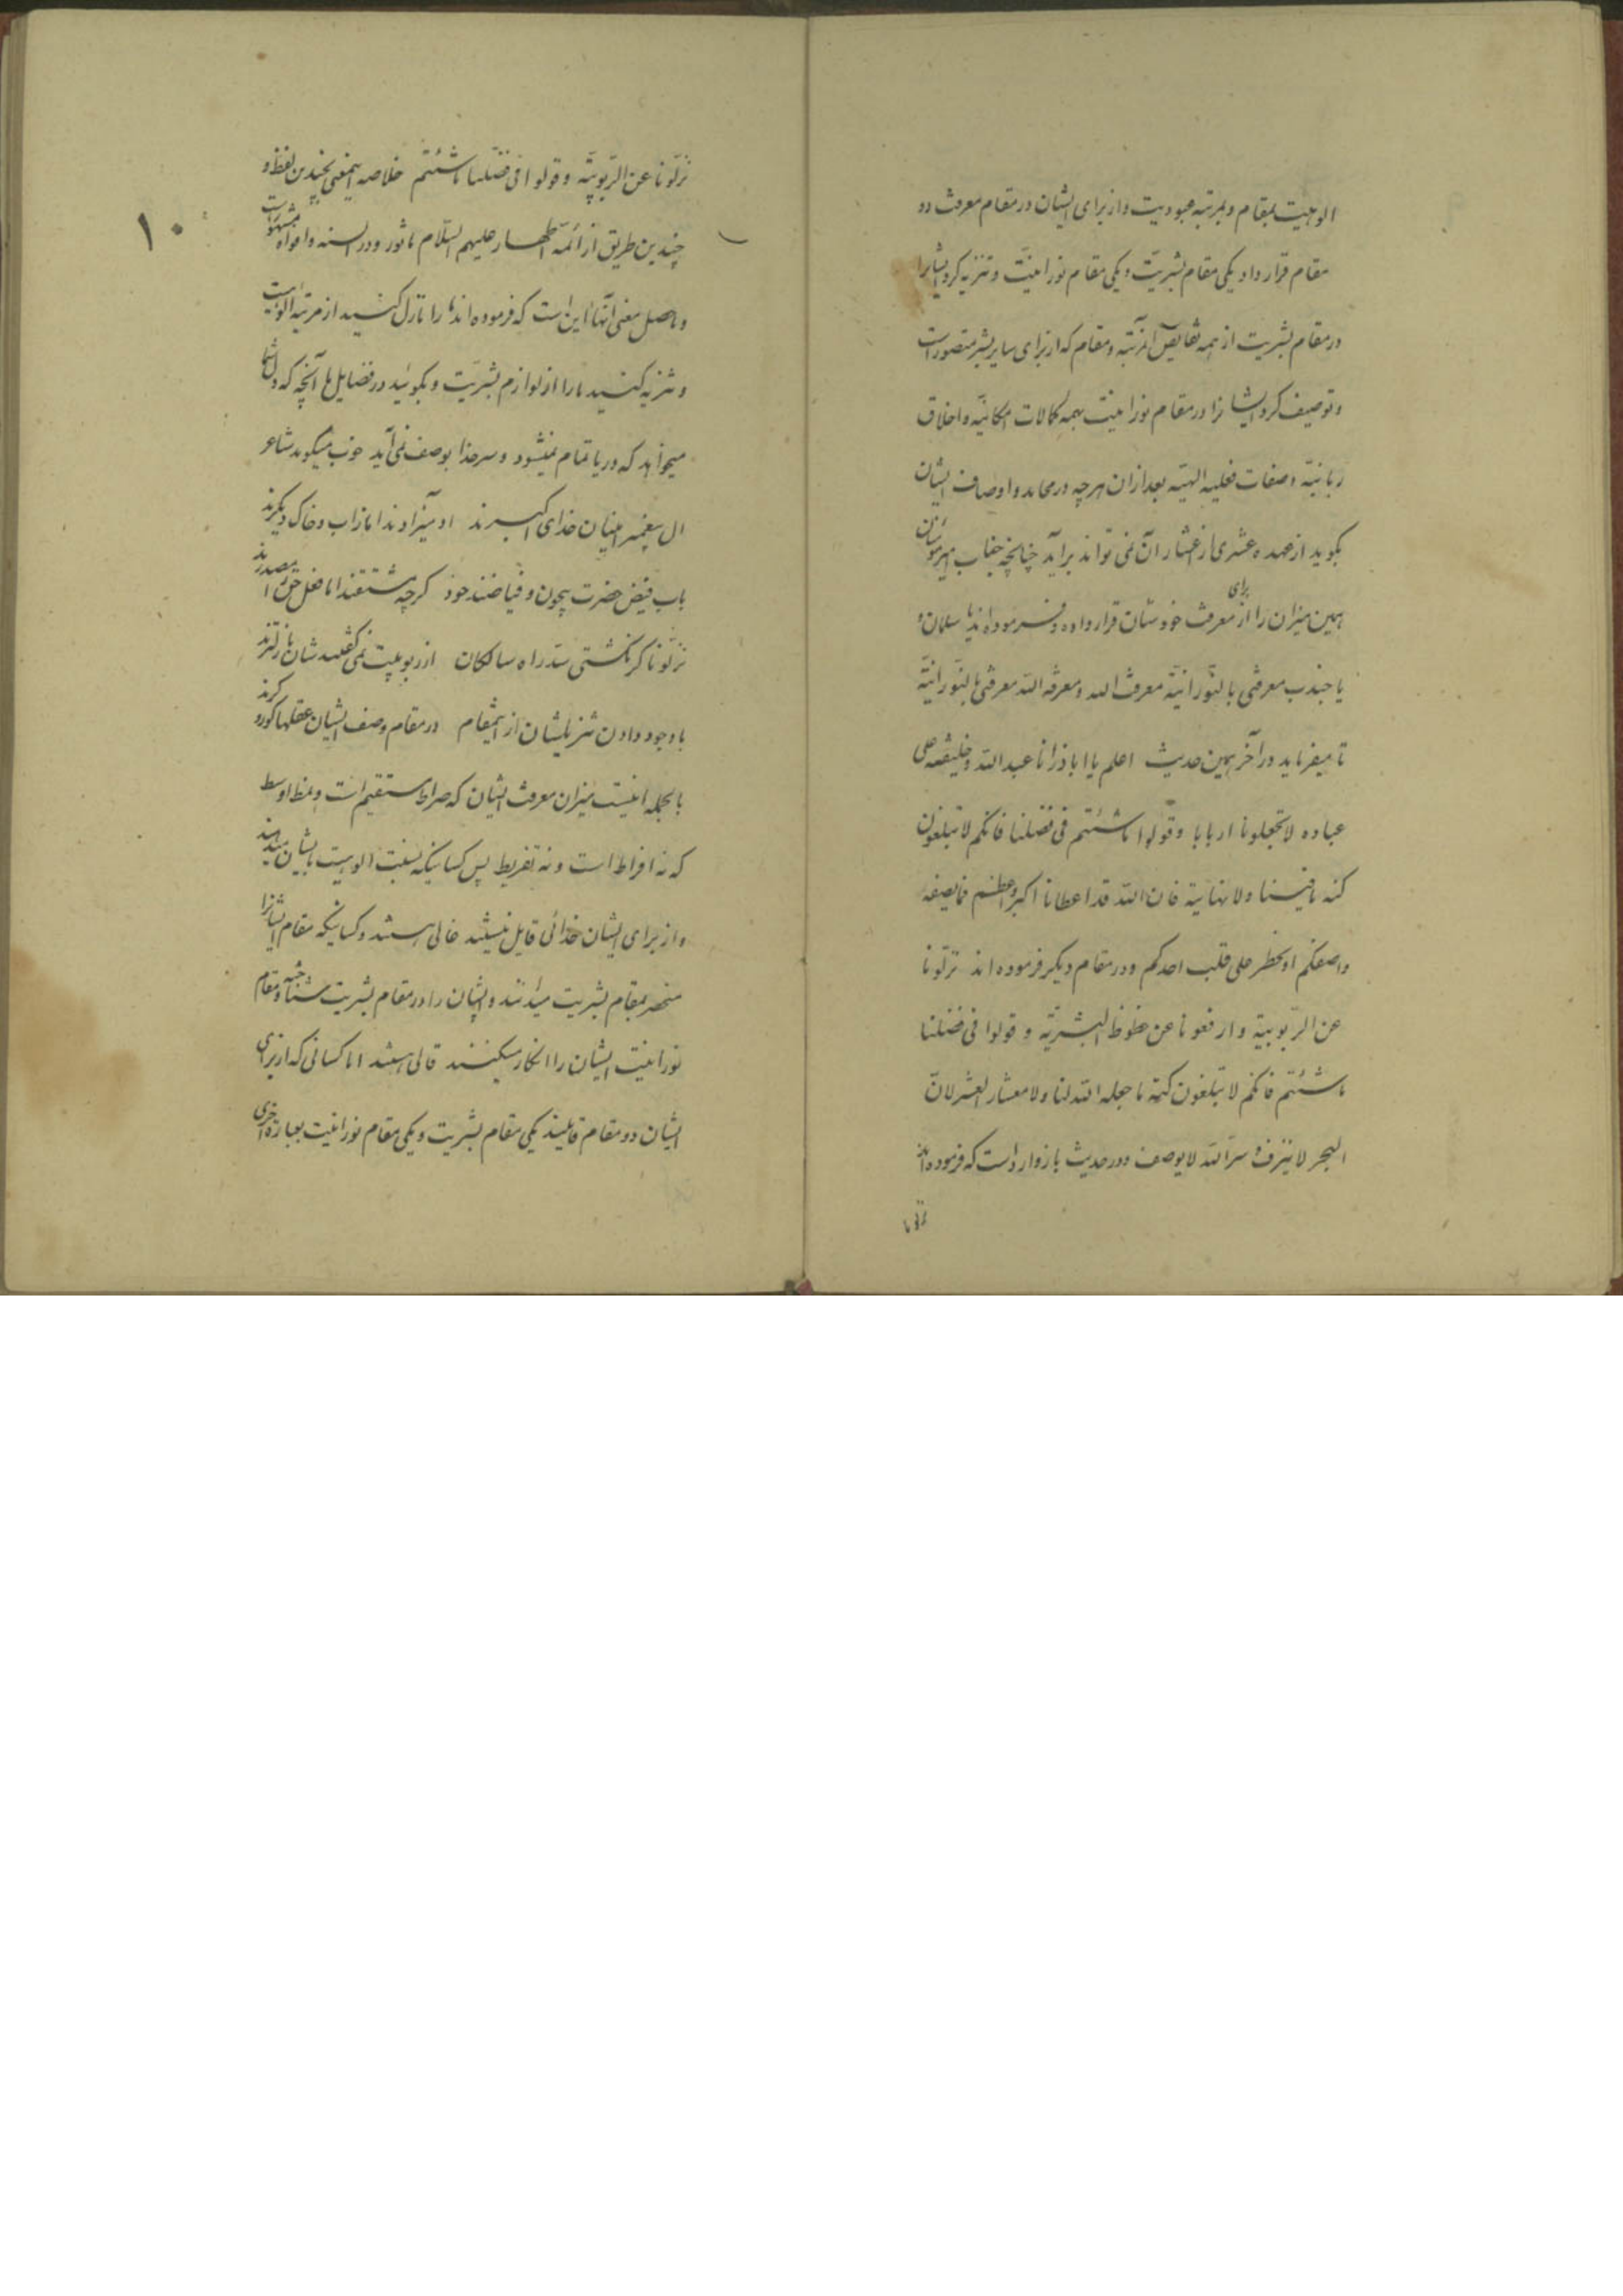 الوهیت بمقام و بمرتبه عبودیت و از برای ایشان در مقام معرفت دو
مقام قرار داد یکی مقام بشریّت و یکی مقام نورانیّت و تنزیه کرد ایشانرا
در مقام بشریت از همه نقایص آنمرتبه و مقام که از برای سایر بشر متصور است
و توصیف کرد ایشانرا در مقام نورانیت بهمه کمالات امکانیّه و اخلاق
ربانیّه و صفات فعلیه الهیّه بعد از ان هر چه در محامد و اوصاف ایشان
بکوید از عهده عشری از اعشار آن نمی تواند بر آید چنانچه جناب امیرمؤمنان
همین میزان را از برای معرفت خودشان قرار داده و فرموده اند یا سلمان و
یا جندب معرفتی بالنّورانیّه معرفة الله و معرفة الله معرفتی بالنّورانیّه
تا میفرماید در آخر همین حدیث اعلم یا اباذر انا عبد الله و خلیفته علی
عباده لا تجعلونا اربابا و قولوا ما شئتم فی فضلنا فانکم لا تبلغون
کنه ما فینا و لا نهایته فان الله قد اعطانا اکبر و اعظم مما یصفه
واصفکم او یخطر علی قلب احدکم و در مقام دیکر فرموده اند نزلونا
عن الرّبوبیة و ارفعونا عن حظوظ البشریّه و قولوا فی فضلنا
ما شئتم فانکم لا تبلغون کنه ما جعله الله لنا و لا معشار العشر لانّ
البحر لا ینزف و سرّ الله لا یوصف و در حدیث بازوار است که فرموده اند
نزلونا
۱۰
نزّلونا عن الرّبوبیّه و قولوا فی فضلنا ما شئتم خلاصه اینمعنی بچندین لفظ و
چندین طریق از ائمّه اطهار علیهم السّلام ماثور و در السنه و افواه مشهور است
و حاصل معنی آنها این است که فرموده اند ما را نازل کنید از مرتبه الوهیت
و تنزیه کنید ما را از لوازم بشریّت و بکوئید در فضایل ما آنچه که دل شما
میخواهد که دریا تمام نمیشود و سر خدا بوصف نمی آید خوب میکوید شاعر
ال پیغمبر امینان خدای اکبرند او میزاوندا ما ز اب و خاک دیکرند
باب فیض حضرت بیچون و فیاضند خود کرچه مشتقند اما فعل حق را مصدرند
نزّلونا کر نکشتی سدّ راه سالکان از ربوبیت نمی کفتند شان نازلترند
با وجود دادن تنزیلشان از اینمقام در مقام وصف ایشان عقلها کور و کرند
بالجمله اینست میزان معرفت ایشان که صراط مستقیم است و نمط اوسط
که نه افراط است و نه تفریط پس کسانیکه نسبت الوهیت بایشان میدهند
و از برای ایشان خدائی قایل نیستند غالی هستند و کسانیکه مقام ایشانرا
منحصر بمقام بشریت میدانند و ایشان را در مقام بشریت شناخته و مقام
نورانیت ایشان را انکار میکنند قالی هستند اما کسانی که از برای
ایشان دو مقام قایلند یکی مقام بشریت و یکی مقام نورانیت بعبارة اخری